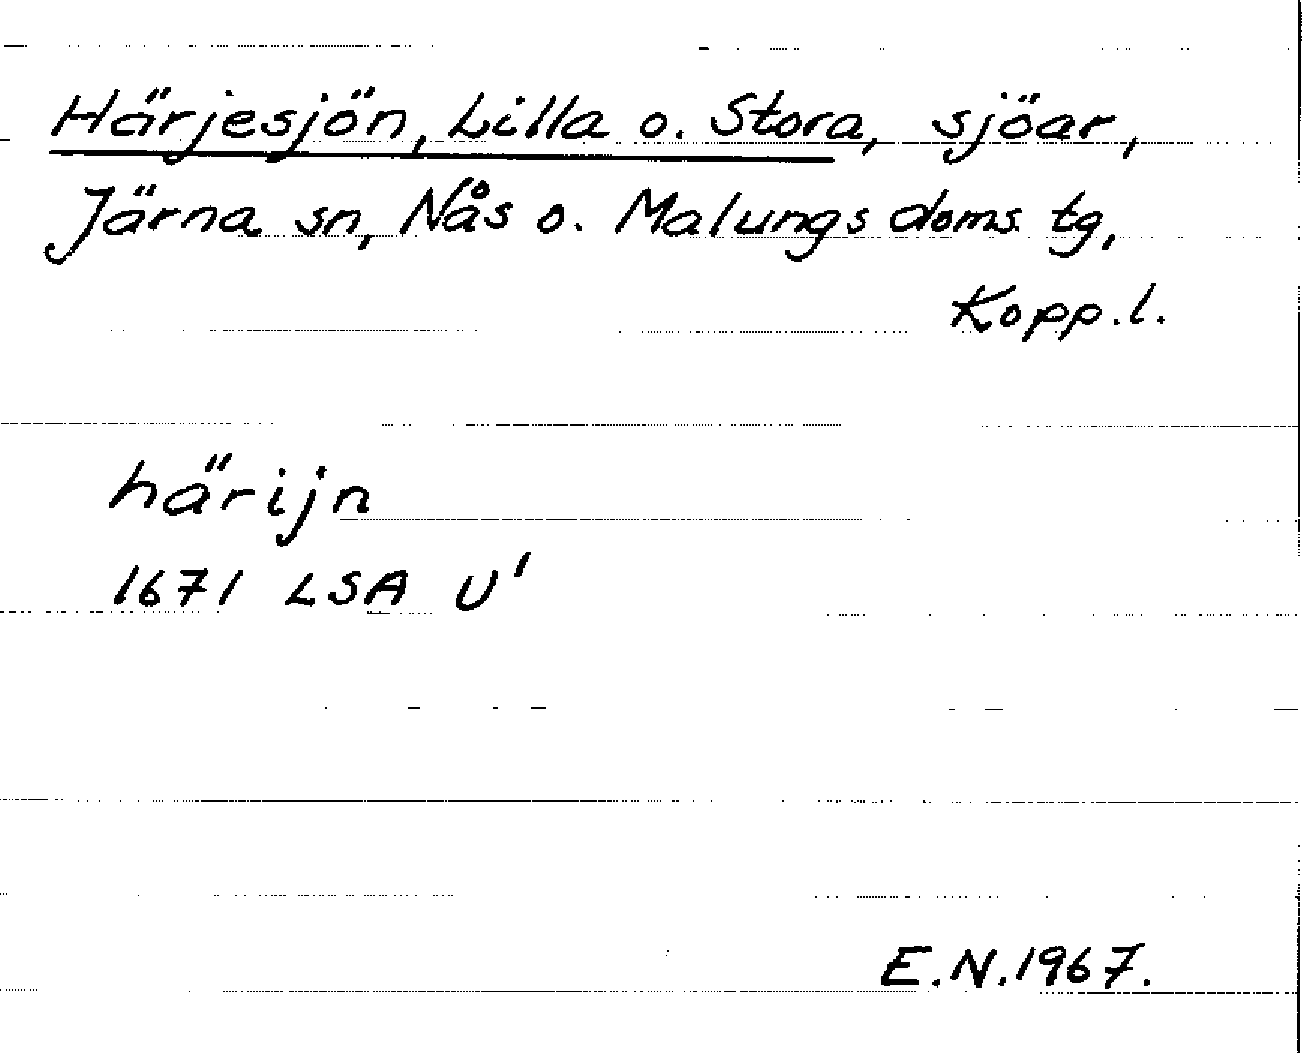 Härjesjön, Lilla o. Stora, sjöar,
Järna sn, Nås o. Malungs doms. tg,
Kopp.l.
härijn
1671 LSA U'
E.N.1967.